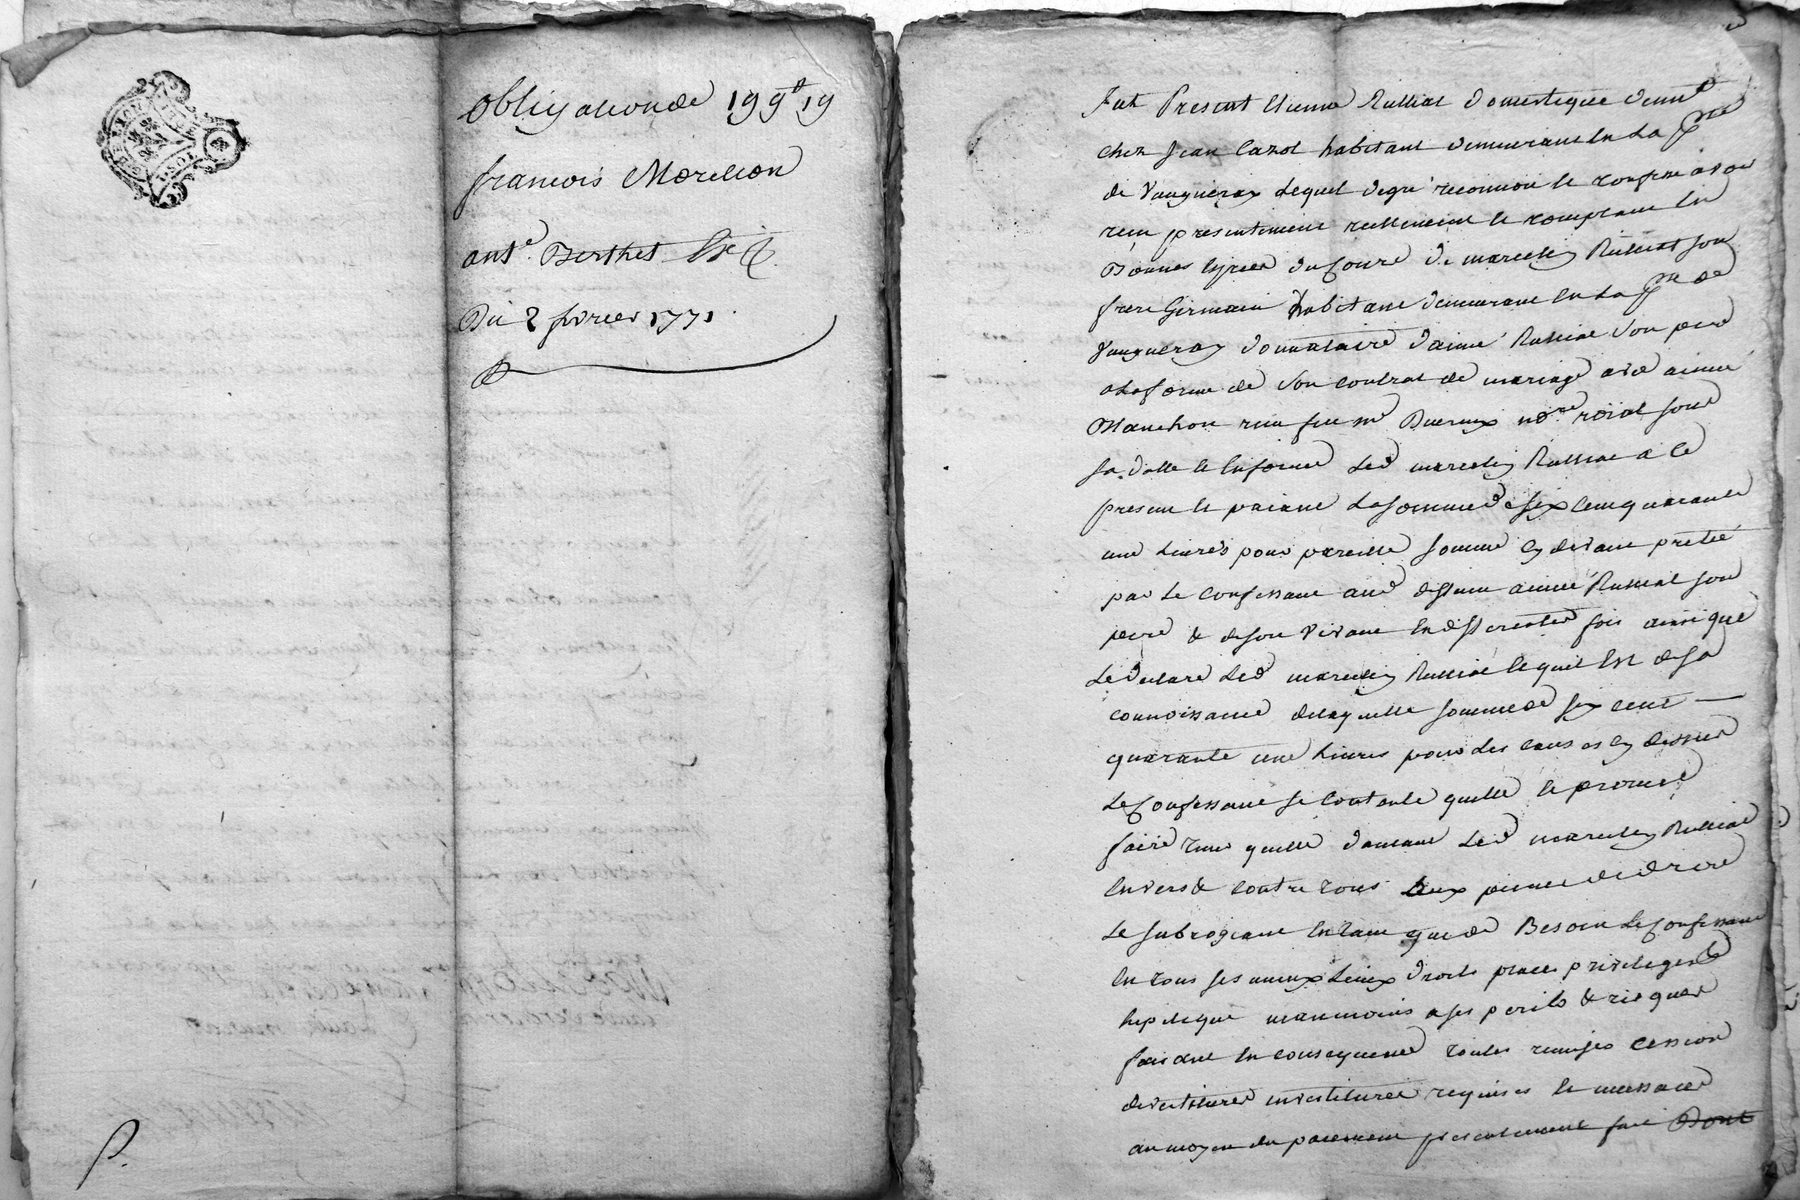 obligation de 199# 19
francois Morillon
ant.e Berthet
Du 2 fevrier 1771
P.
Fut Present Etienne Rulliat Domestique demt
chez Jean Cazot habitant demeurant en la psse
de Vaugneray Lequel de gré reconnoit et confesse avoir
reçu presentement reellement et comptant en
Bonnes Espèces du cours de marcelin Rulliat son
frere Germain habitant demeurant en la psse de
Vaugneray donnataire d'aimé Rulliat son pere
a la forme de son contrat de mariage avec aimée
Blanchon reçu feu me nore roïal sous
sa datte et en forme Led marcelin Rulliat a ce
present et paiant La somme de six cent quarante
une Livres pour pareille somme cy devant pretée
par Le confessant aud deffunt aimé Rulliat son
pere & de son vivant en differentes fois ainsi que
Le declare Led marcelin Rulliat lequel en de sa
connoissance de laquelle somme de six cent
quarante une Livres pour Les causes cy dessus
Le Confessant se contente quitte et promet
faire tenir quitte d'autant Led marcelin Rulliat
envers & contre tous aux peines de droit
Le subrogeant en tant que de Besoin Le Confessant
en tous ses lieux droits place privileges et
hipoteque neanmoins a ses perils & risques
faisant en consequence toutes remises cession
devestitures investitures requises et necessaires
au moyen du paiement presentement fait Dont